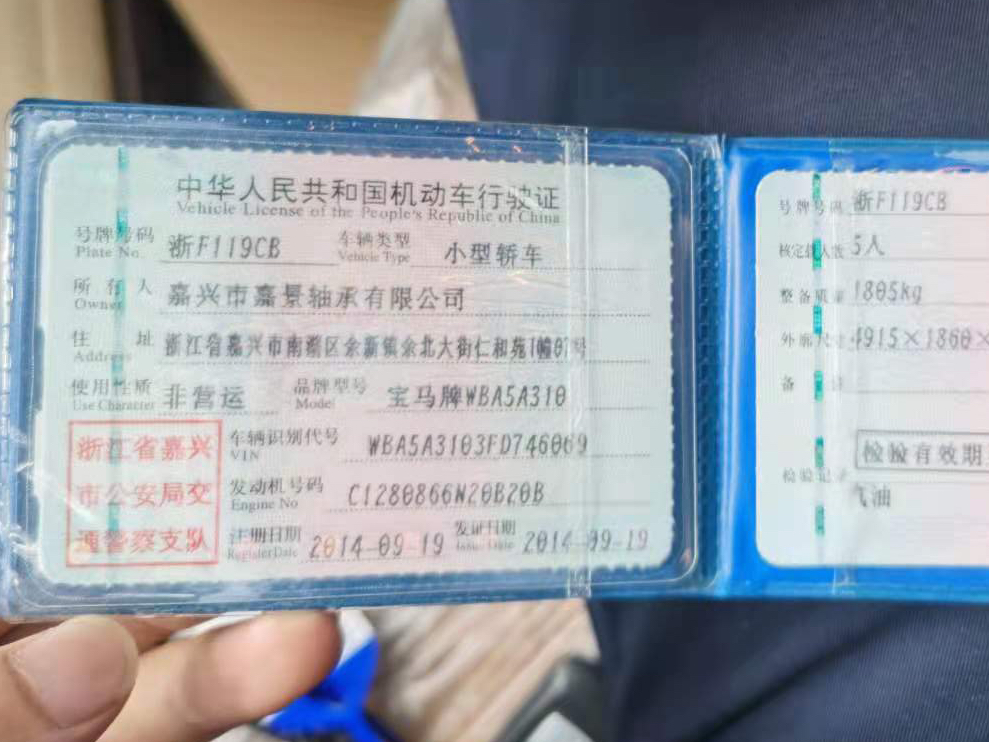 中华人民共和国机动车行驶证
Vehicle License of the People's Republic of China
号牌号码 浙F119CB 车辆类型 小型轿车
Plate No. Vehicle Type
所有人 嘉兴市嘉景轴承有限公司
Owner
住址 浙江省嘉兴市南湖区余新镇余北大街仁和苑1幢07号
Address
使用性质 非营运 品牌型号 宝马牌WBA5A310
Use Character Model
浙江省嘉兴
市公安局交
通警察支队
车辆识别代号 WBA5A3103FD746069
VIN
发动机号码 C1280866N20B20B
Engine No
注册日期 2014-09-19 发证日期 2014-09-19
Register Date Issue Date
号牌号码 浙F119CB
核定载人数 5人
整备质量 1805kg
外廓尺寸 4915×1860×
备注
检验有效期
检验记录
气油